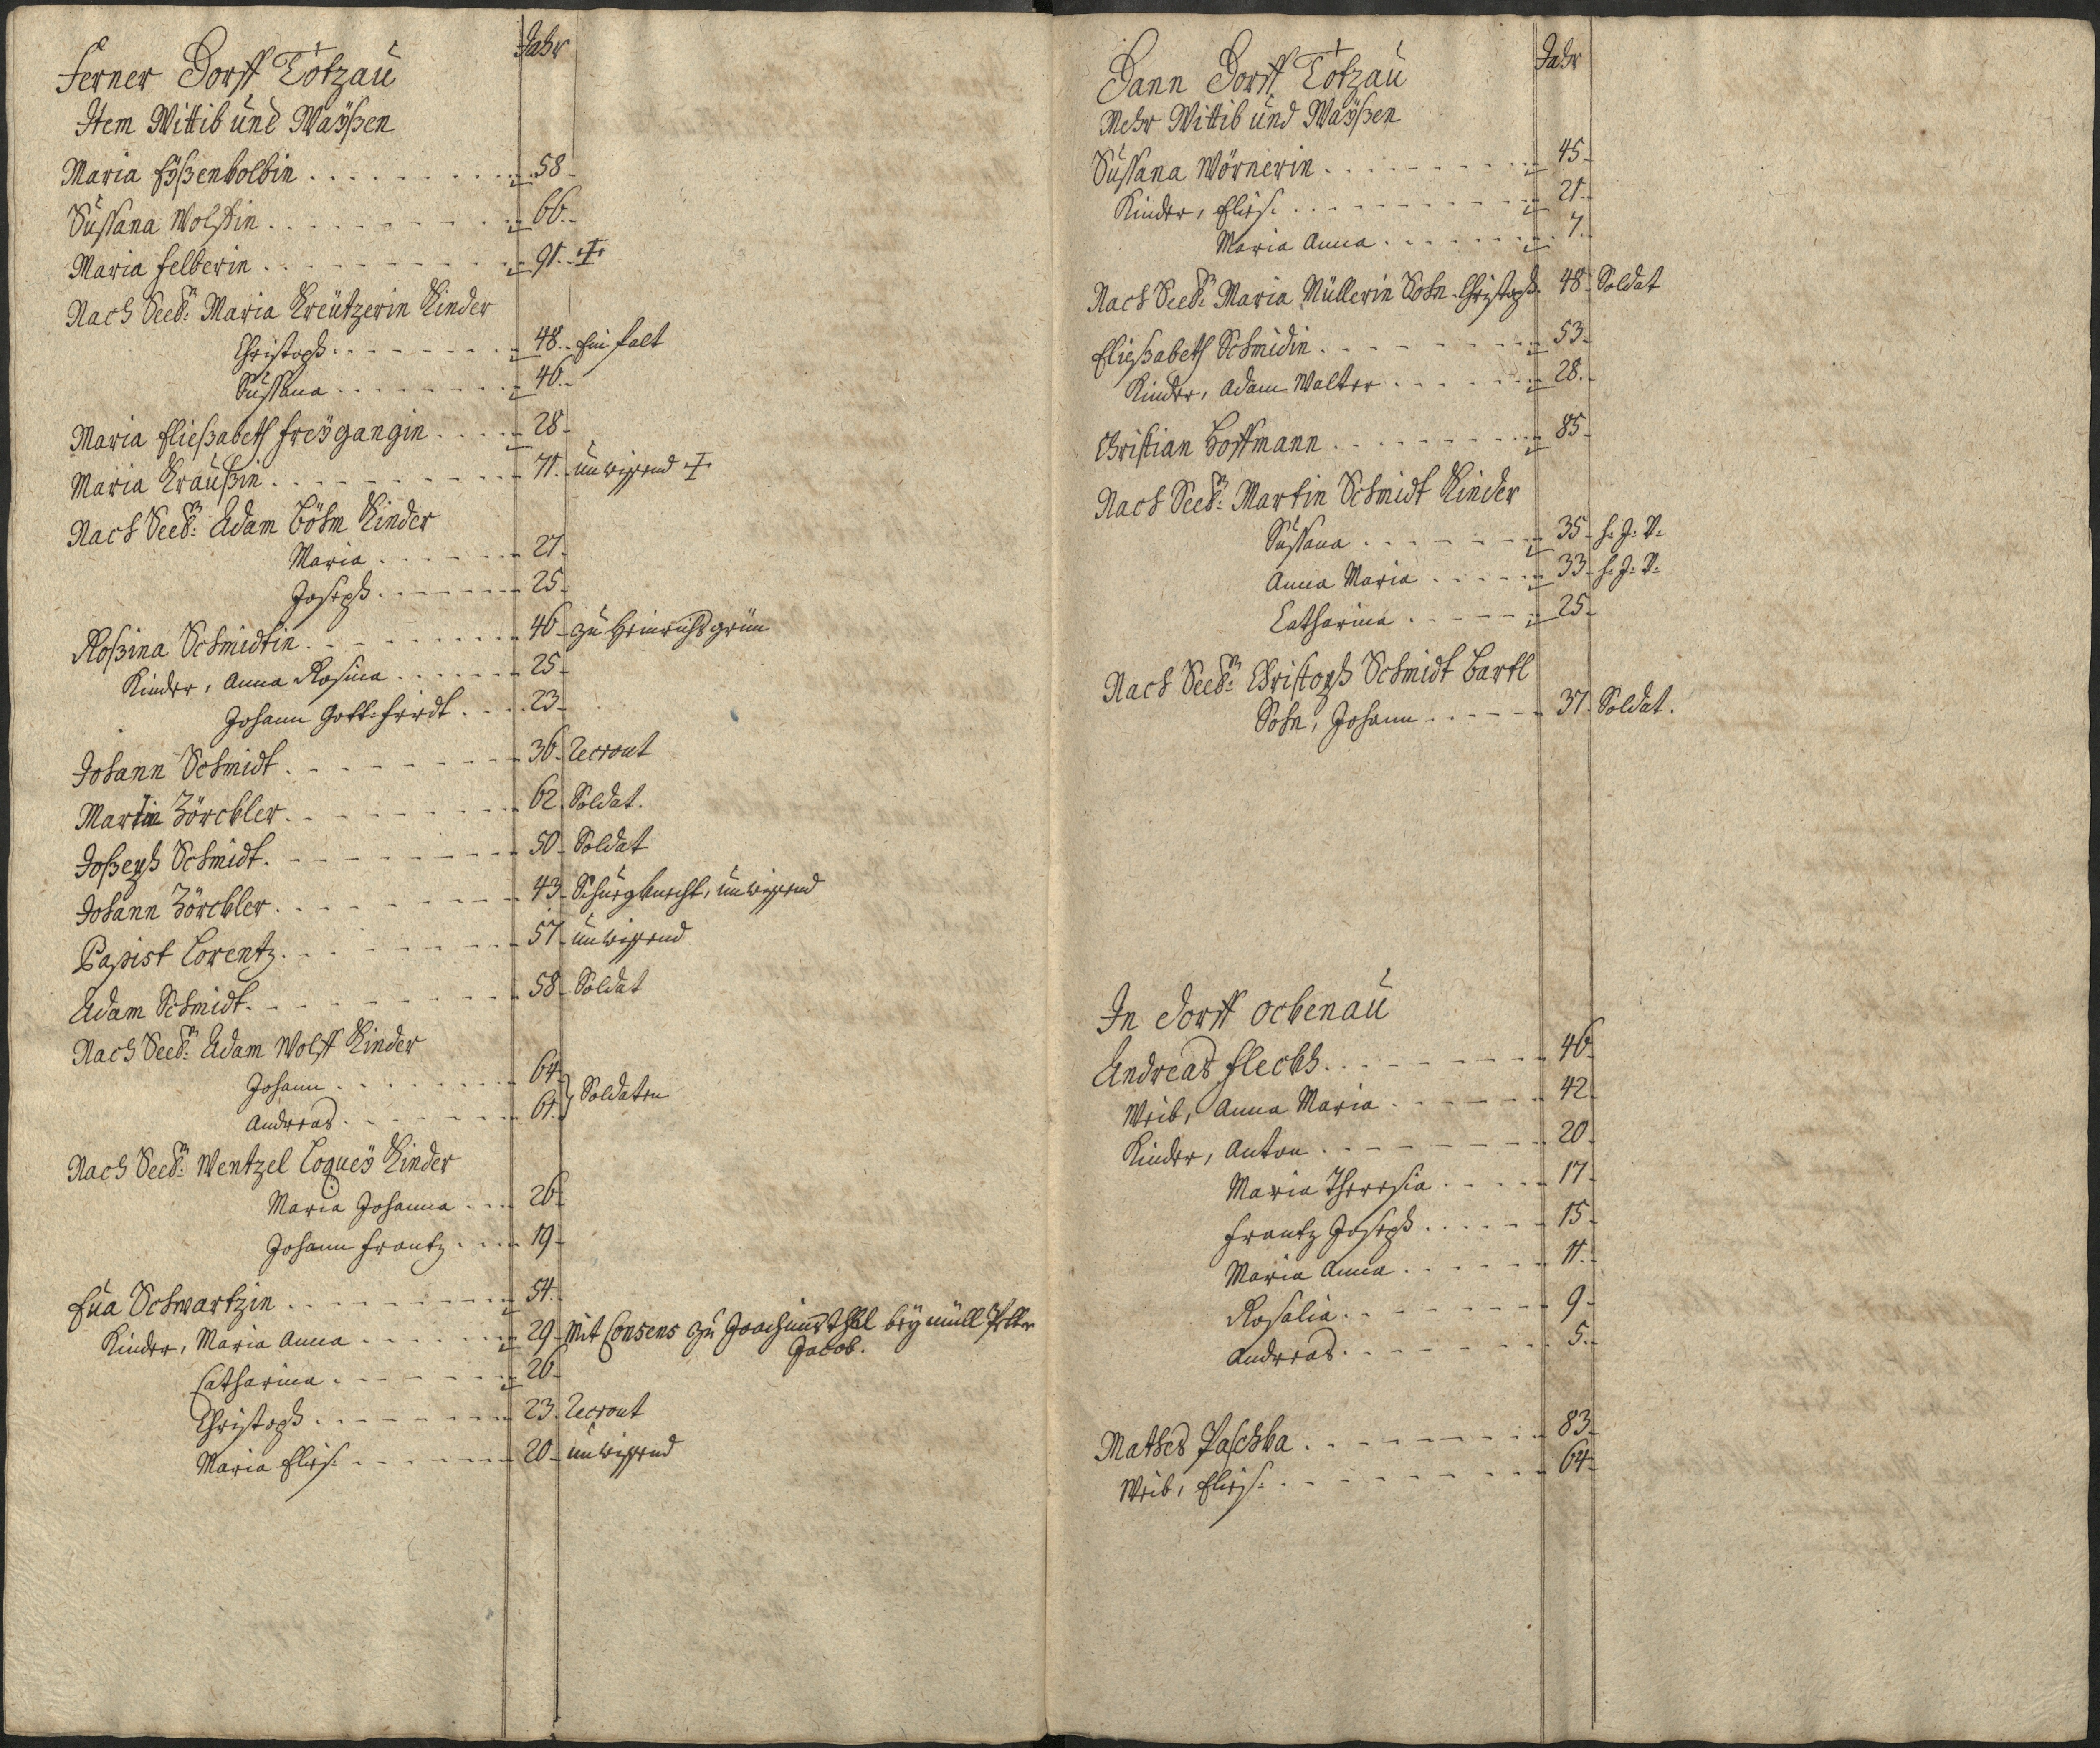 Ferner Dorff Totzau Jahr
Item Wittib und Waÿßen
Maria Eÿßenkolbin 58
Sussana Wolffin 66
Maria Felberin 91 ✝
Nach Seel: Maria Kreützerin Kinder
Christoph 48 Einfalt
Sussana 46
Maria Eließabeth Freÿgangin 28
Maria Kraußin 71 unwissend ✝
Nach Seel: Adam Böhm Kinder
Maria 27
Joseph 25
Roßina Schmidtin 46 zu Heinrichsgrün
Kinder, Anna Rosina 25
Johann Gott-friedt 23
Johann Schmidt 36 Recrout
Martin Zörckler 62 Soldat.
Joßeph Schmidt 50 Soldat
Johann Zörckler 43 unwissend
Papist Lorentz 57 unwissend
Adam Schmidt 58 Soldat
Nach Seel: Adam Wolff Kinder
Johann 64
Soldaten
Andreas 61
Nach Seel: Wentzel Loqueÿ Kinder
Maria Johanna 26
Johann Frantz 19
Eua Schwartzin 54
Kinder, Maria Anna 29 Mit Consens zu Joachimsthal beÿ
Jacob.
Catharina 26
Christoph 23 Recrout
Maria Elies: 20 unwissend
Dann Dorff Totzau Jahr
Mehr Wittib und Waÿßen
Sussana Wörnerin 45
Kinder, Elies: 21
Maria Anna 7
Nach Seel: Maria Müllerin Sohn Christoph 48 Soldat
Eließabeth Schmidin 53
Kinder, Adam Walter 28
Christian Hoffmann 85
Nach Seel: Martin Schmidt Kinder
Sussana 35
Anna Maria 33
Catharina 25
Nach Seel: Christoph Schmidt Bartl
Sohn, Johann 37 Soldat.
In Dorff Ockenau
Andreas Fleckh 46
Weib, Anna Maria 42
Kinder, Anton 20
Maria Theresia 17
Frantz Joseph 15
Maria Anna 11
Rosalia 9
Andreas 5
Mathes Paschka 83
Weib, Elies: 64